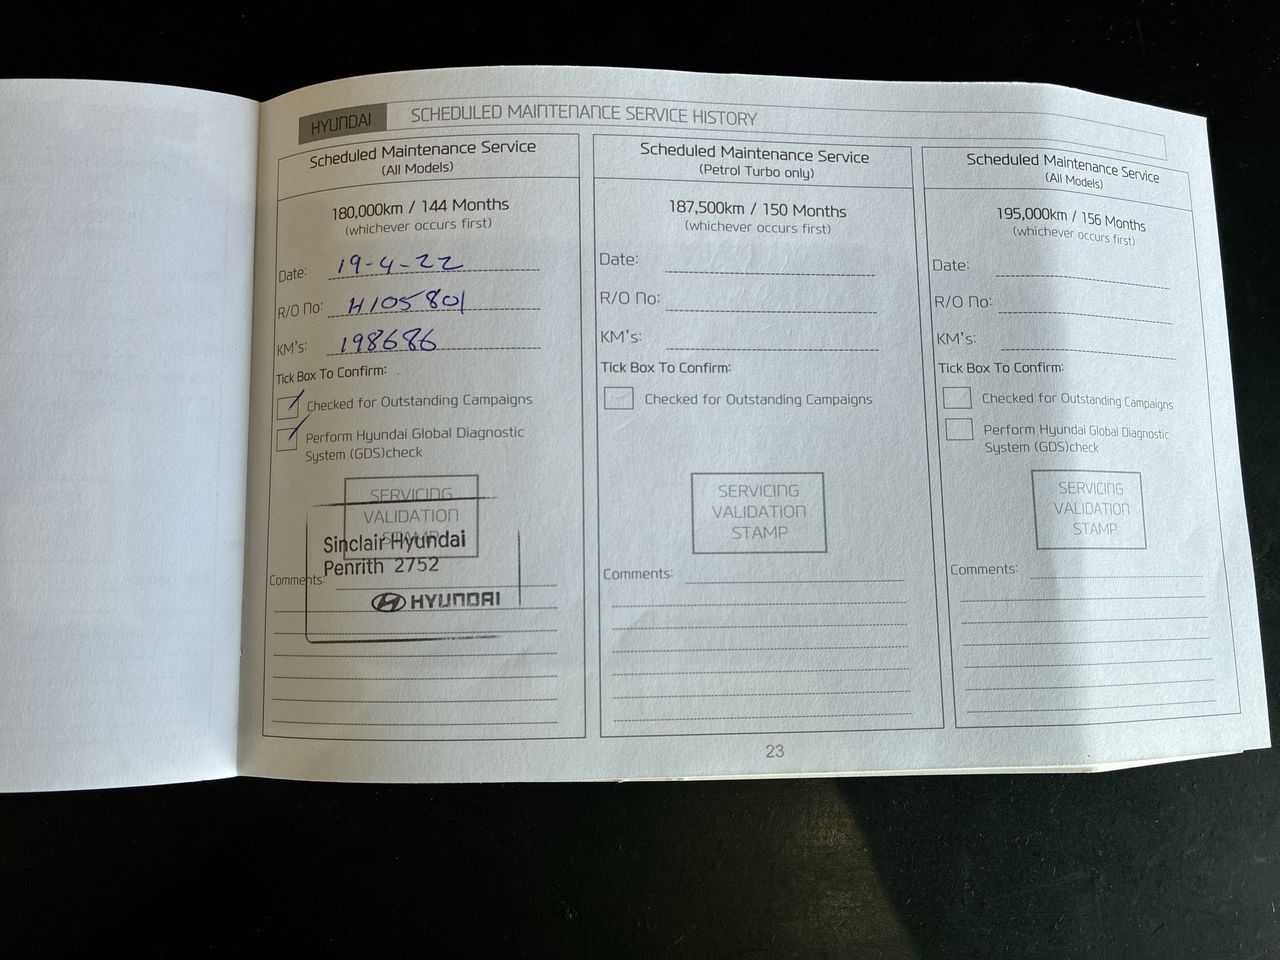 HYUNDAI SCHEDULED MAINTENANCE SERVICE HISTORY
Scheduled Maintenance Service
(All Models)
180,000km / 144 Months
(whichever occurs first)
Date: 19-4-22
R/O No: H105801
KM's: 198686
Tick Box To Confirm:
Checked for Outstanding Campaigns
Perform Hyundai Global Diagnostic
System (GDS)check
SERVICING
VALIDATION
STAMP
Sinclair Hyundai
Penrith 2752
Comments:
HYUNDAI
Scheduled Maintenance Service
(Petrol Turbo only)
187,500km / 150 Months
(whichever occurs first)
Date:
R/O No:
KM's:
Tick Box To Confirm:
Checked for Outstanding Campaigns
SERVICING
VALIDATION
STAMP
Comments:
Scheduled Maintenance Service
(All Models)
195,000km / 156 Months
(whichever occurs first)
Date:
R/O No:
KM's:
Tick Box To Confirm:
Checked for Outstanding Campaigns
Perform Hyundai Global Diagnostic
System (GDS)check
SERVICING
VALIDATION
STAMP
Comments:
23